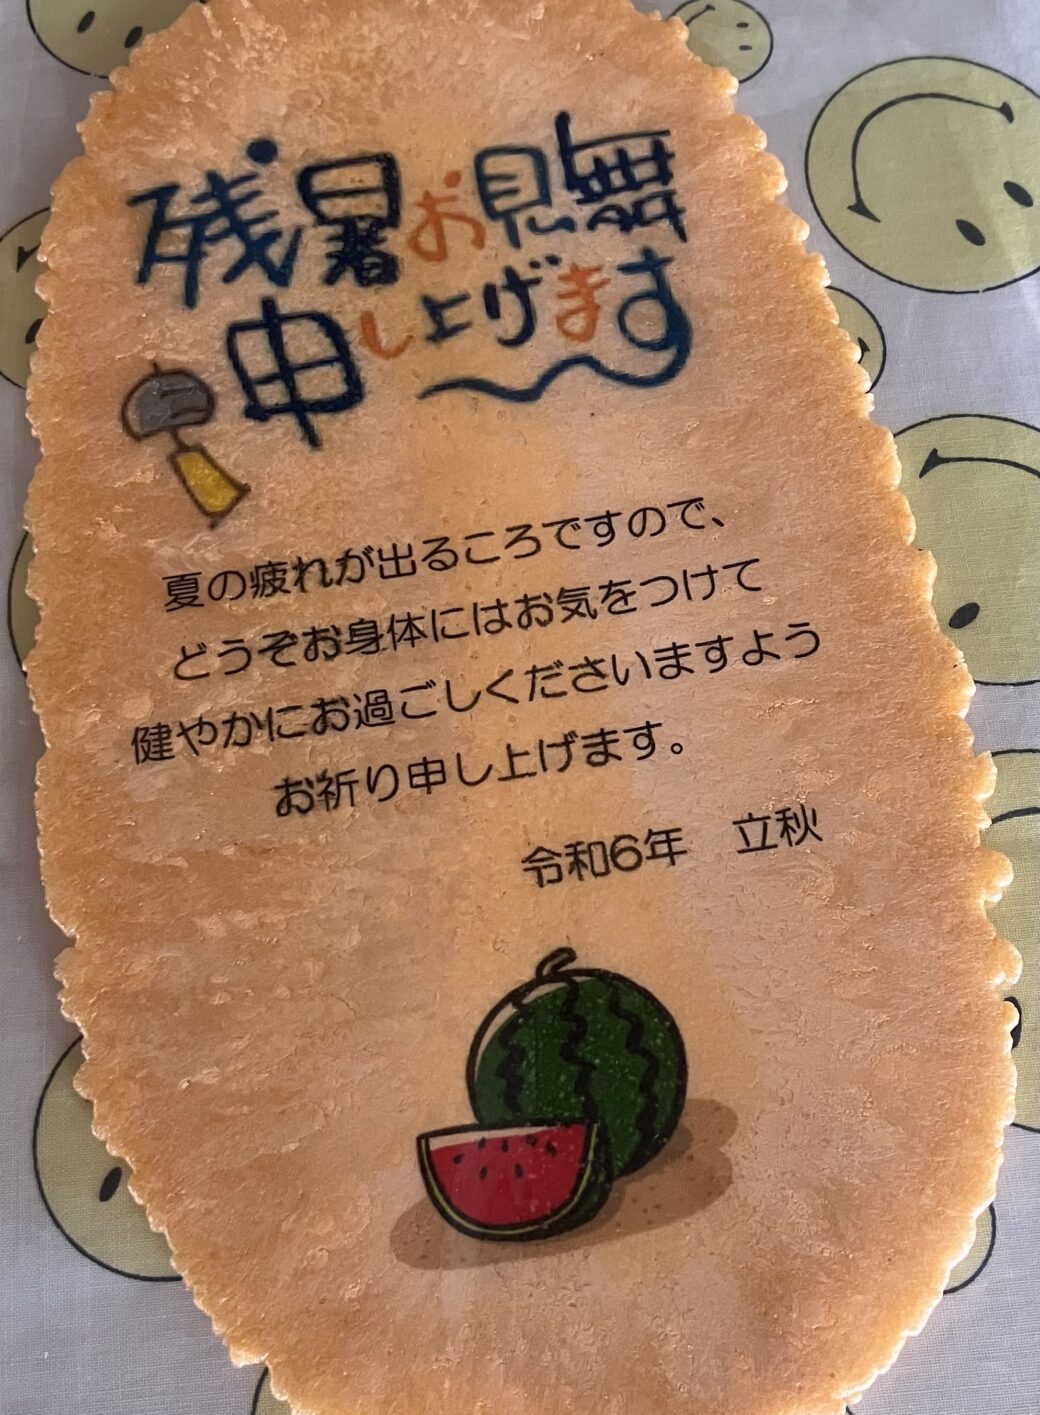 残暑お見舞
申し上げます
夏の疲れが出るころですので、
どうぞお身体にはお気をつけて
健やかにお過ごしくださいますよう
お祈り申し上げます。
令和6年　立秋